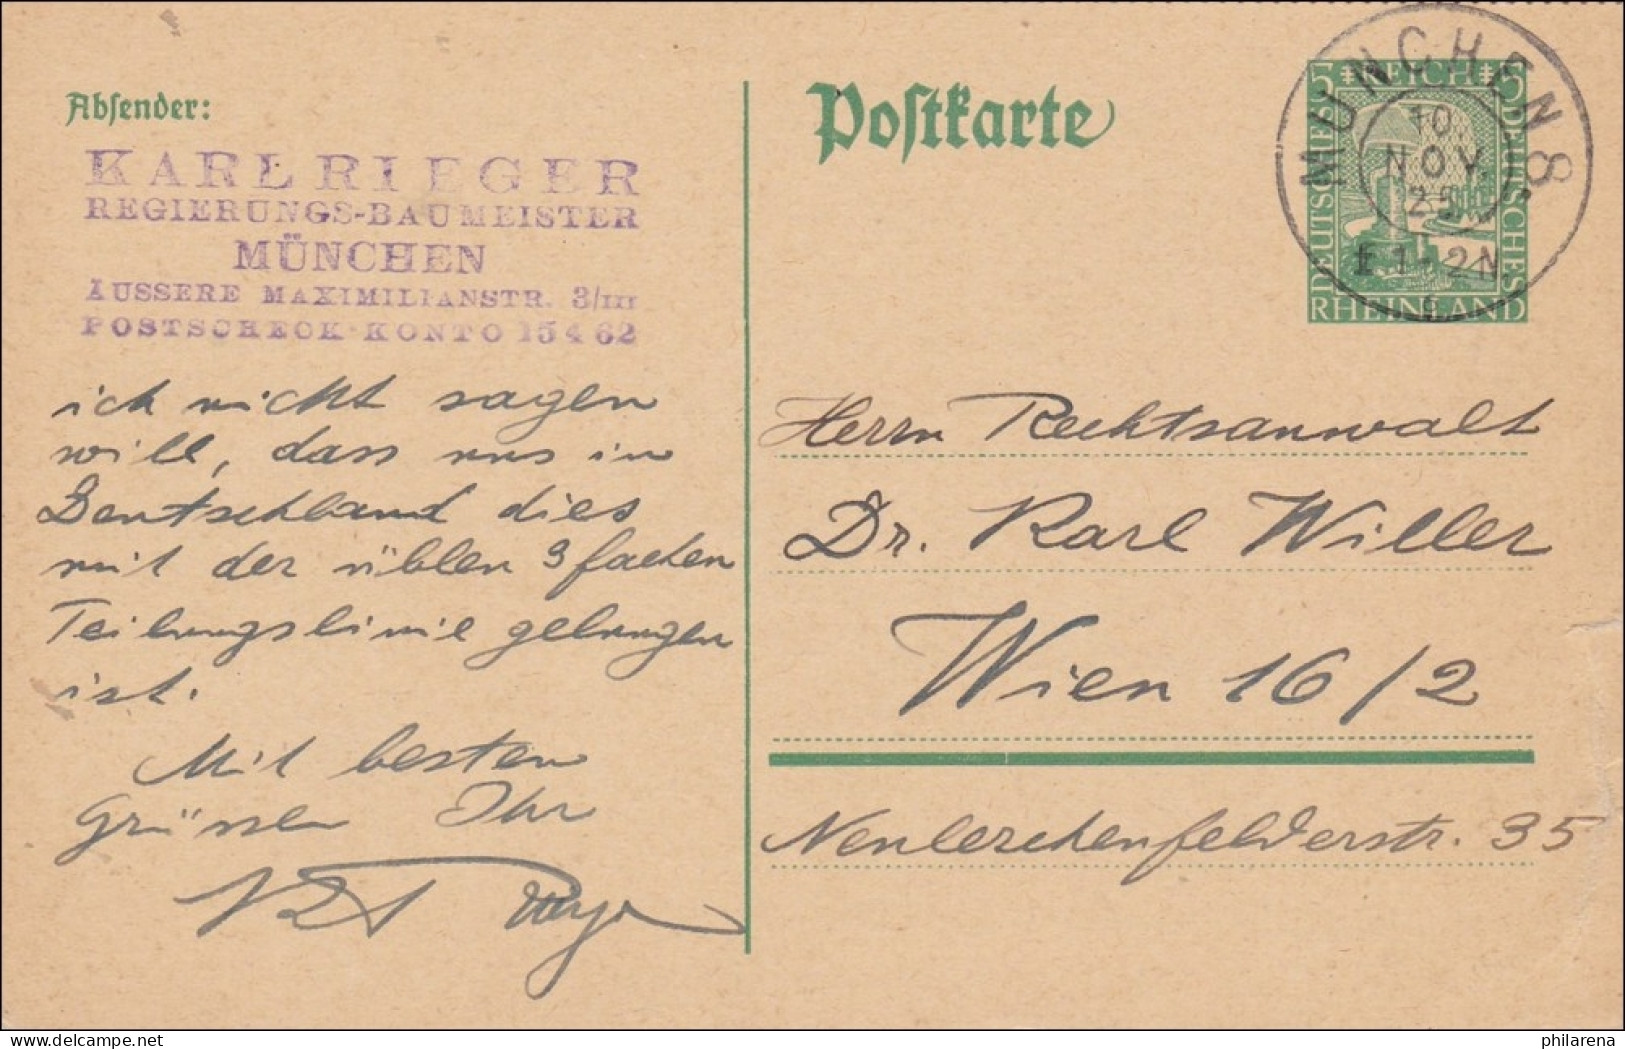 Absender:
KARL RIEGER
REGIERUNGS-BAUMEISTER
MÜNCHEN
ÄUSSERE MAXIMILIANSTR. 3/III
POSTSCHECK-KONTO 15462
ich nicht sagen
will, dass uns in
Deutschland dies
mit der üblen 3 fachen
Teilungslinie gelungen
ist.
Mit besten
Grüssen Ihr
Postkarte
MÜNCHEN 8.
10.
NOV.
25
1-2N.
5 REICH 5
DEUTSCHES
DEUTSCHES
RHEINLAND
Herrn Rechtsanwalt
Dr. Karl Willer
Wien 16/2
Neulerchenfelderstr. 35
philarena